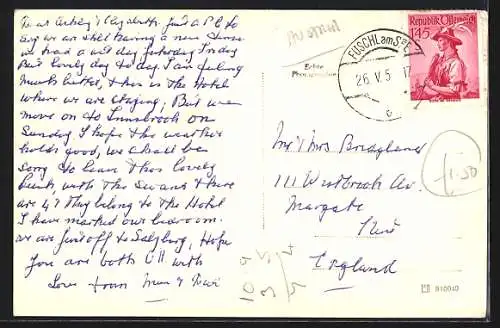 Just a P.C to
say we are still having a nice time
we had a wet day yesterday Friday
But lovely day to day. I am feeling
Much better, this is the Hotel
where we are staying, But we
move on to Innsbrook on
Sunday I hope the weather
holds good, we shall be
sorry to leave this lovely
with the Swans there
are 4. They belong to the Hotel
I have marked our bedroom.
we are just off to Salzburg, Hope
You are both OK with
Love from Mum &
Austria
Echte
FUSCHL am SEE
26. V. 5 17
c
Republik Österreich
1.45
Mr & Mrs Broughland
111 Westbrook Av.
Margate
Kent
England
1.50
10 9
3 5
5 4
810040